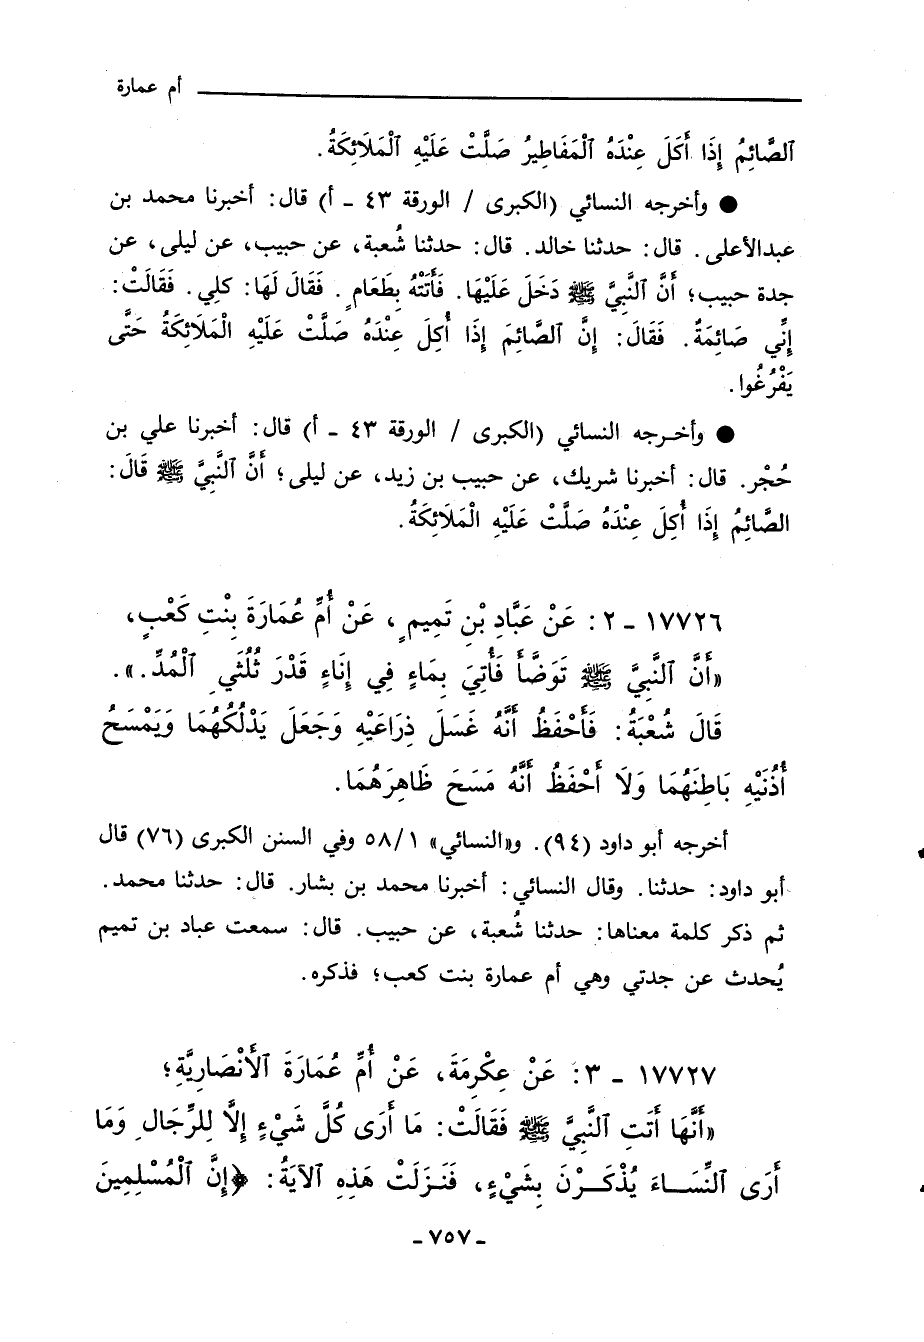 أم عمارة
ٱلصَّائِمُ إِذَا أَكَلَ عِنْدَهُ ٱلْمَفَاطِيرُ صَلَّتْ عَلَيْهِ ٱلْمَلَائِكَةُ.
● وأخرجه النسائي (الكبرى / الورقة ٤٣ ـ أ) قال: أخبرنا محمد بن
عبدالأعلى. قال: حدثنا خالد. قال: حدثنا شُعبة، عن حبيب، عن ليلى، عن
جدة حبيب؛ أَنَّ ٱلنَّبِيَّ ﷺ دَخَلَ عَلَيْهَا. فَأَتَتْهُ بِطَعَامٍ. فَقَالَ لَهَا: كلِي. فَقَالَتْ:
إِنِّي صَائِمَةٌ. فَقَالَ: إِنَّ ٱلصَّائِمَ إِذَا أُكِلَ عِنْدَهُ صَلَّتْ عَلَيْهِ الْمَلَائِكَةُ حَتَّى
يَفْرُغُوا.
● وأخـرجه النسائي (الكبرى / الورقة ٤٣ ـ أ) قال: أخبرنا علي بن
حُجْر. قال: أخبرنا شريك، عن حبيب بن زيد، عن ليلى؛ أَنَّ ٱلنَّبِيَّ ﷺ قَالَ:
الصَّائِمُ إِذَا أُكِلَ عِنْدَهُ صَلَّتْ عَلَيْهِ الْمَلَائِكَةُ.
١٧٧٢٦ ـ ٢: عَنْ عَبَّادِ بْنِ تَمِيمٍ، عَنْ أُمِّ عُمَارَةَ بِنْتِ كَعْبٍ،
«أَنَّ ٱلنَّبِيَّ ﷺ تَوَضَّأَ فَأُتِيَ بِمَاءٍ فِي إِنَاءٍ قَدْرَ ثُلُثَيِ ٱلْمُدِّ.».
قَالَ شُعْبَةُ: فَأَحْفَظُ أَنَّهُ غَسَلَ ذِرَاعَيْهِ وَجَعَلَ يَدْلُكُهُمَا وَيَمْسَحُ
أُذُنَيْهِ بَاطِنَهُمَا وَلَا أَحْفَظُ أَنَّهُ مَسَحَ ظَاهِرَهُمَا.
أخرجه أبو داود (٩٤). و«النسائي» ٥٨/١ وفي السنن الكبرى (٧٦) قال
أبو داود: حدثنا. وقال النسائي: أخبرنا محمد بن بشار. قال: حدثنا محمد.
ثم ذكر كلمة معناها: حدثنا شُعبة، عن حبيب. قال: سمعت عباد بن تميم
يُحدث عن جدتي وهي أم عمارة بنت كعب؛ فذكره.
١٧٧٢٧ ـ ٣: عَنْ عِكْرِمَةَ، عَنْ أُمِّ عُمَارَةَ ٱلأَنْصَارِيَّةِ؛
«أَنَّهَا أَتَتِ ٱلنَّبِيَّ ﷺ فَقَالَتْ: مَا أَرَى كُلَّ شَيْءٍ إِلَّا لِلرِّجَالِ وَمَا
أَرَى ٱلنِّسَـاءَ يُذْكَـرْنَ بِشَيْءٍ، فَنَـزَلَتْ هَذِهِ ٱلآيَةُ: ﴿إِنَّ ٱلْمُسْلِمِينَ
ـ ٧٥٧ ـ